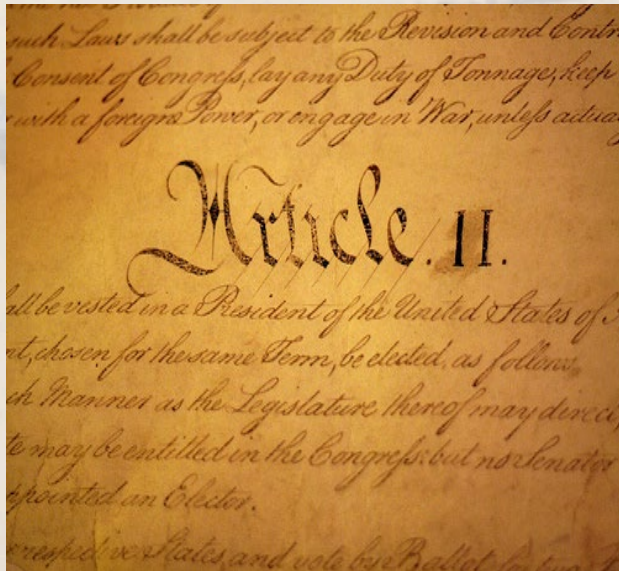 such Laws shall be subject to the Revision and Contr
Consent of Congress, lay any Duty of Tonnage, keep
with a foreign Power, or engage in War, unless actua
Article. II.
all be vested in a President of the United States of
nt, chosen for the same Term, be elected, as follows
ch Manner as the Legislature thereof may direct,
te may be entitled in the Congress: but no Senator
ppointed an Elector.
respective States, and vote by Ballot for two